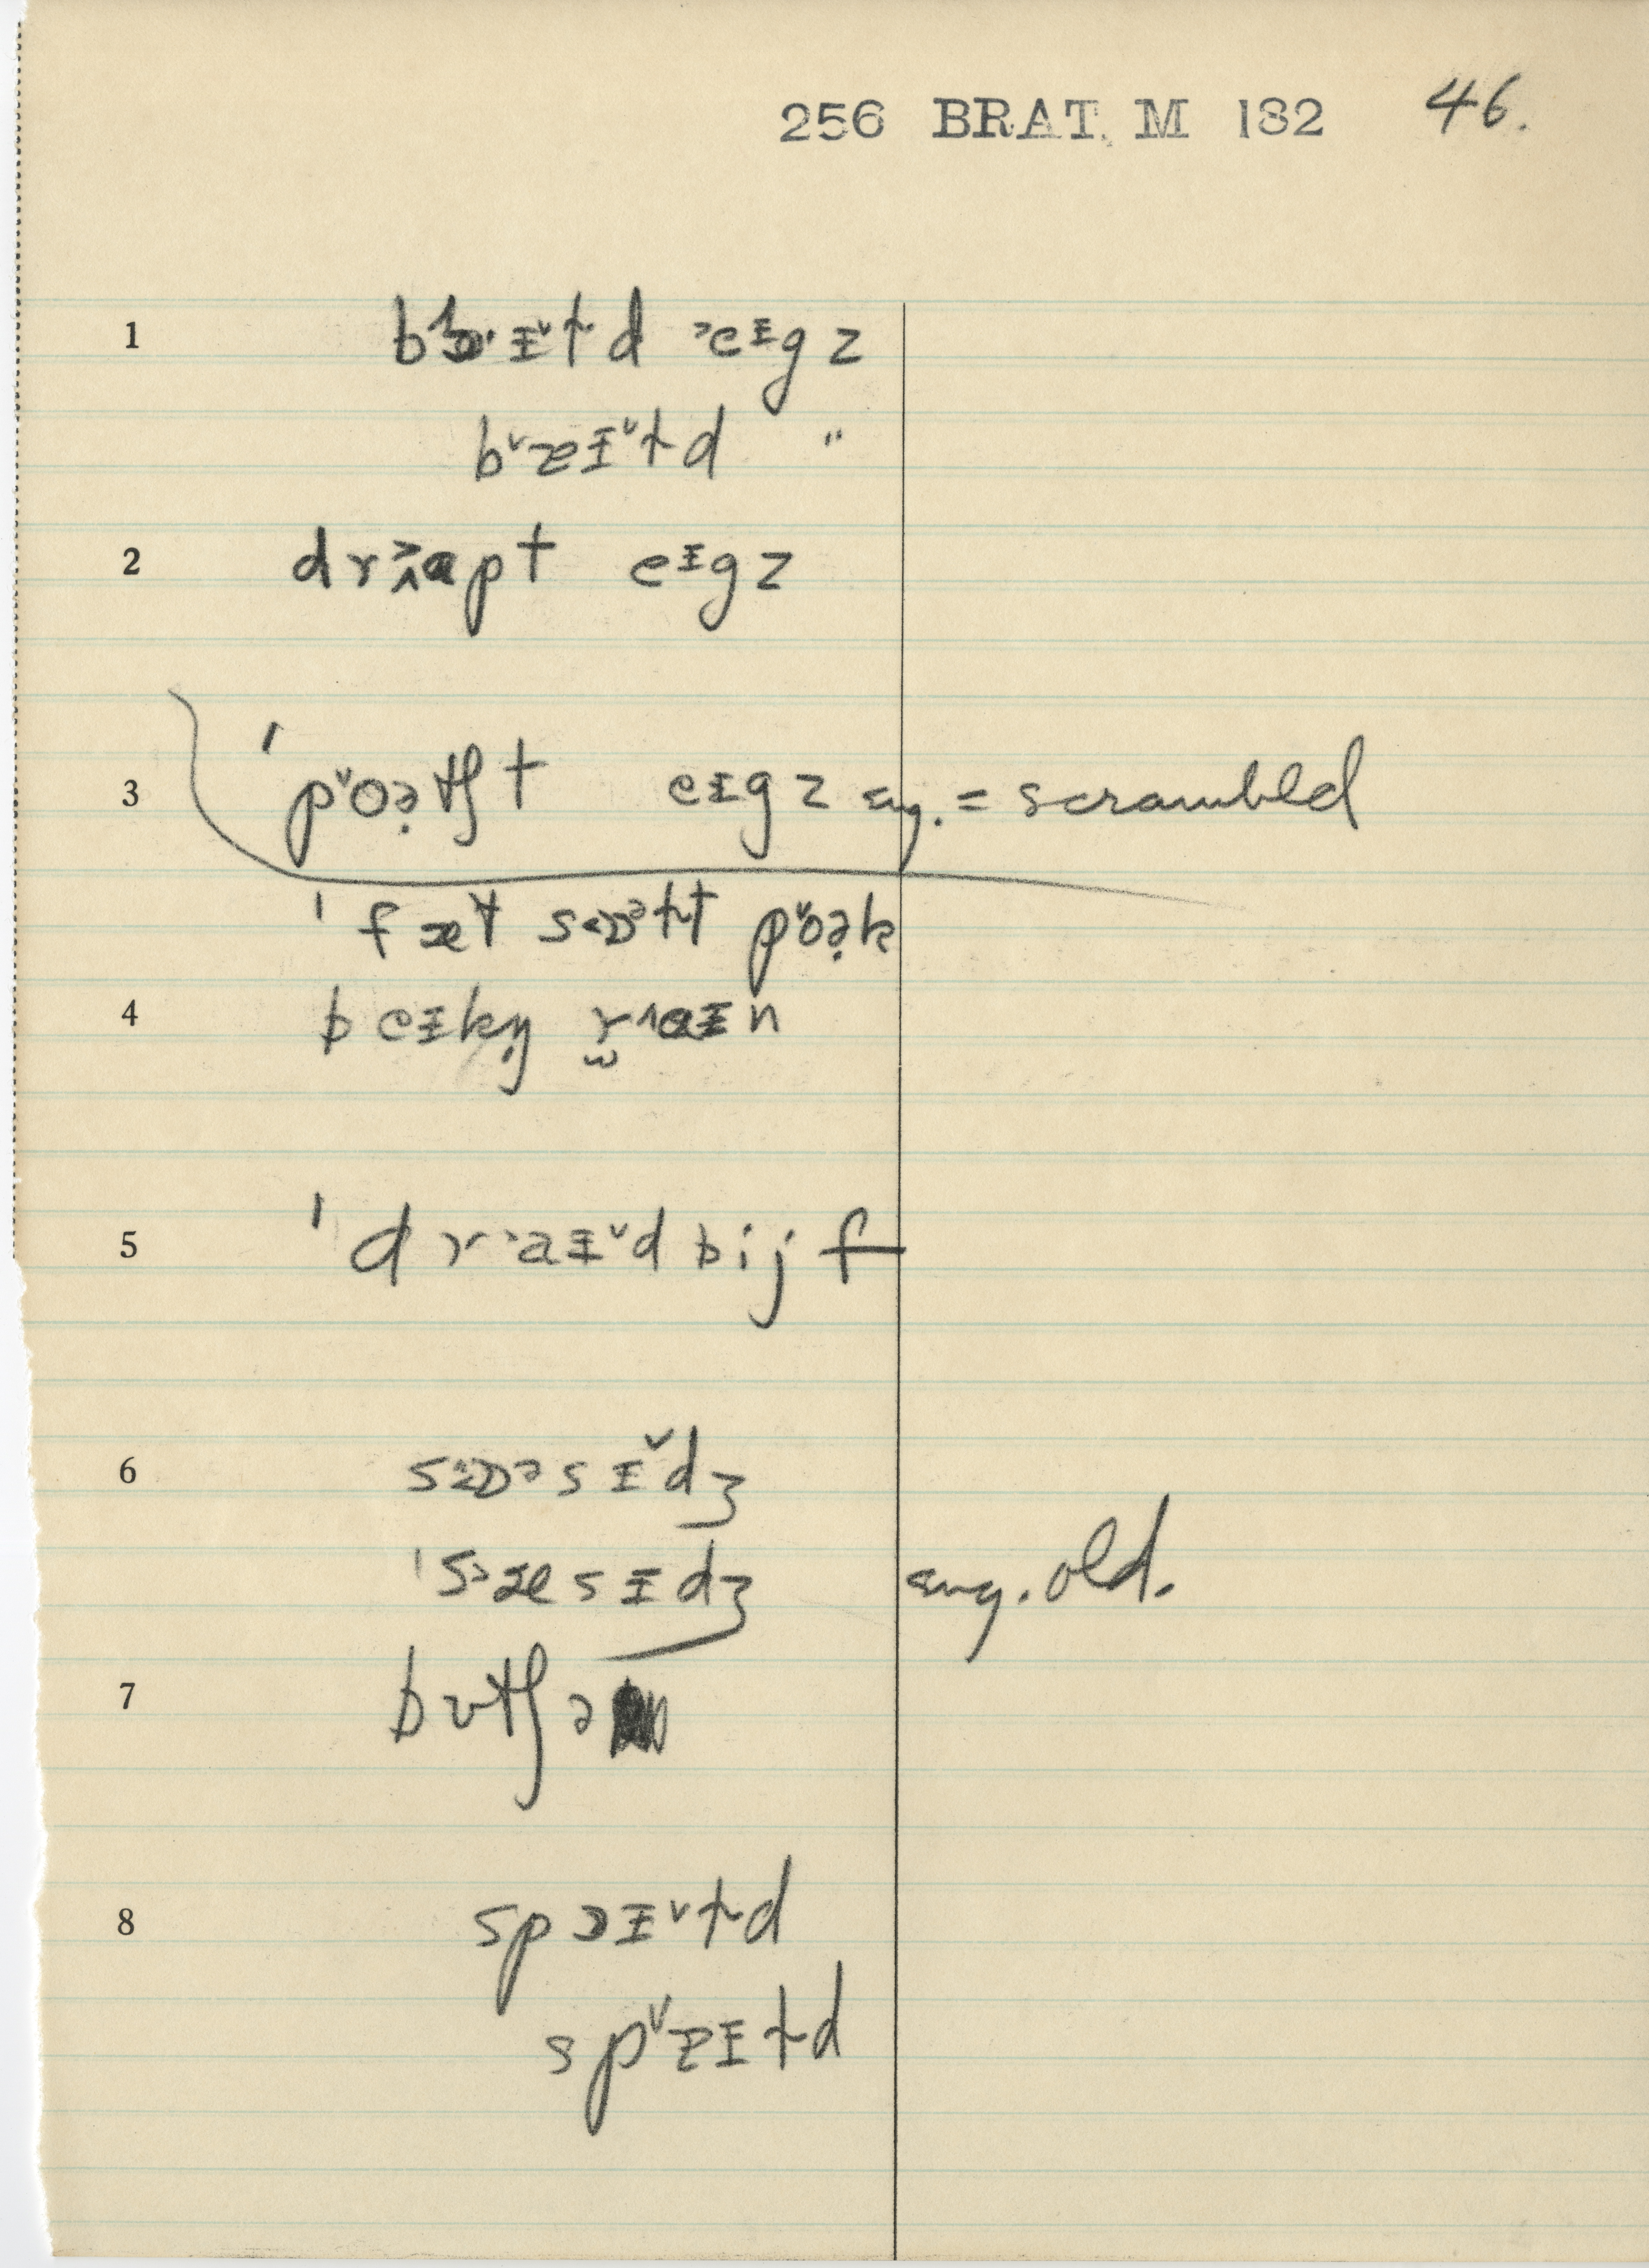 256 BRAT. M 182 46.
1 bɔɪ˅ɫd ˃eɪgz
b˅ɔeɪ˅ɫd "
2 drɑpt eɪgz
3 ˈp˅oə̣tʃt eɪgz aug. = scrambled
ˈfæt s<ɒᵊɫt p˅oə̣k
4 beɪkŋ r̯˄aɪn
5 ˈdr˃aɪ˅d bijf
6 sɒ˃sɪ˅dʒ
ˈs˃æsɪdʒ aug. old.
7 bʊtʃə
8 spɔɪ˅ɫd
sp˅ɔeɪɫd